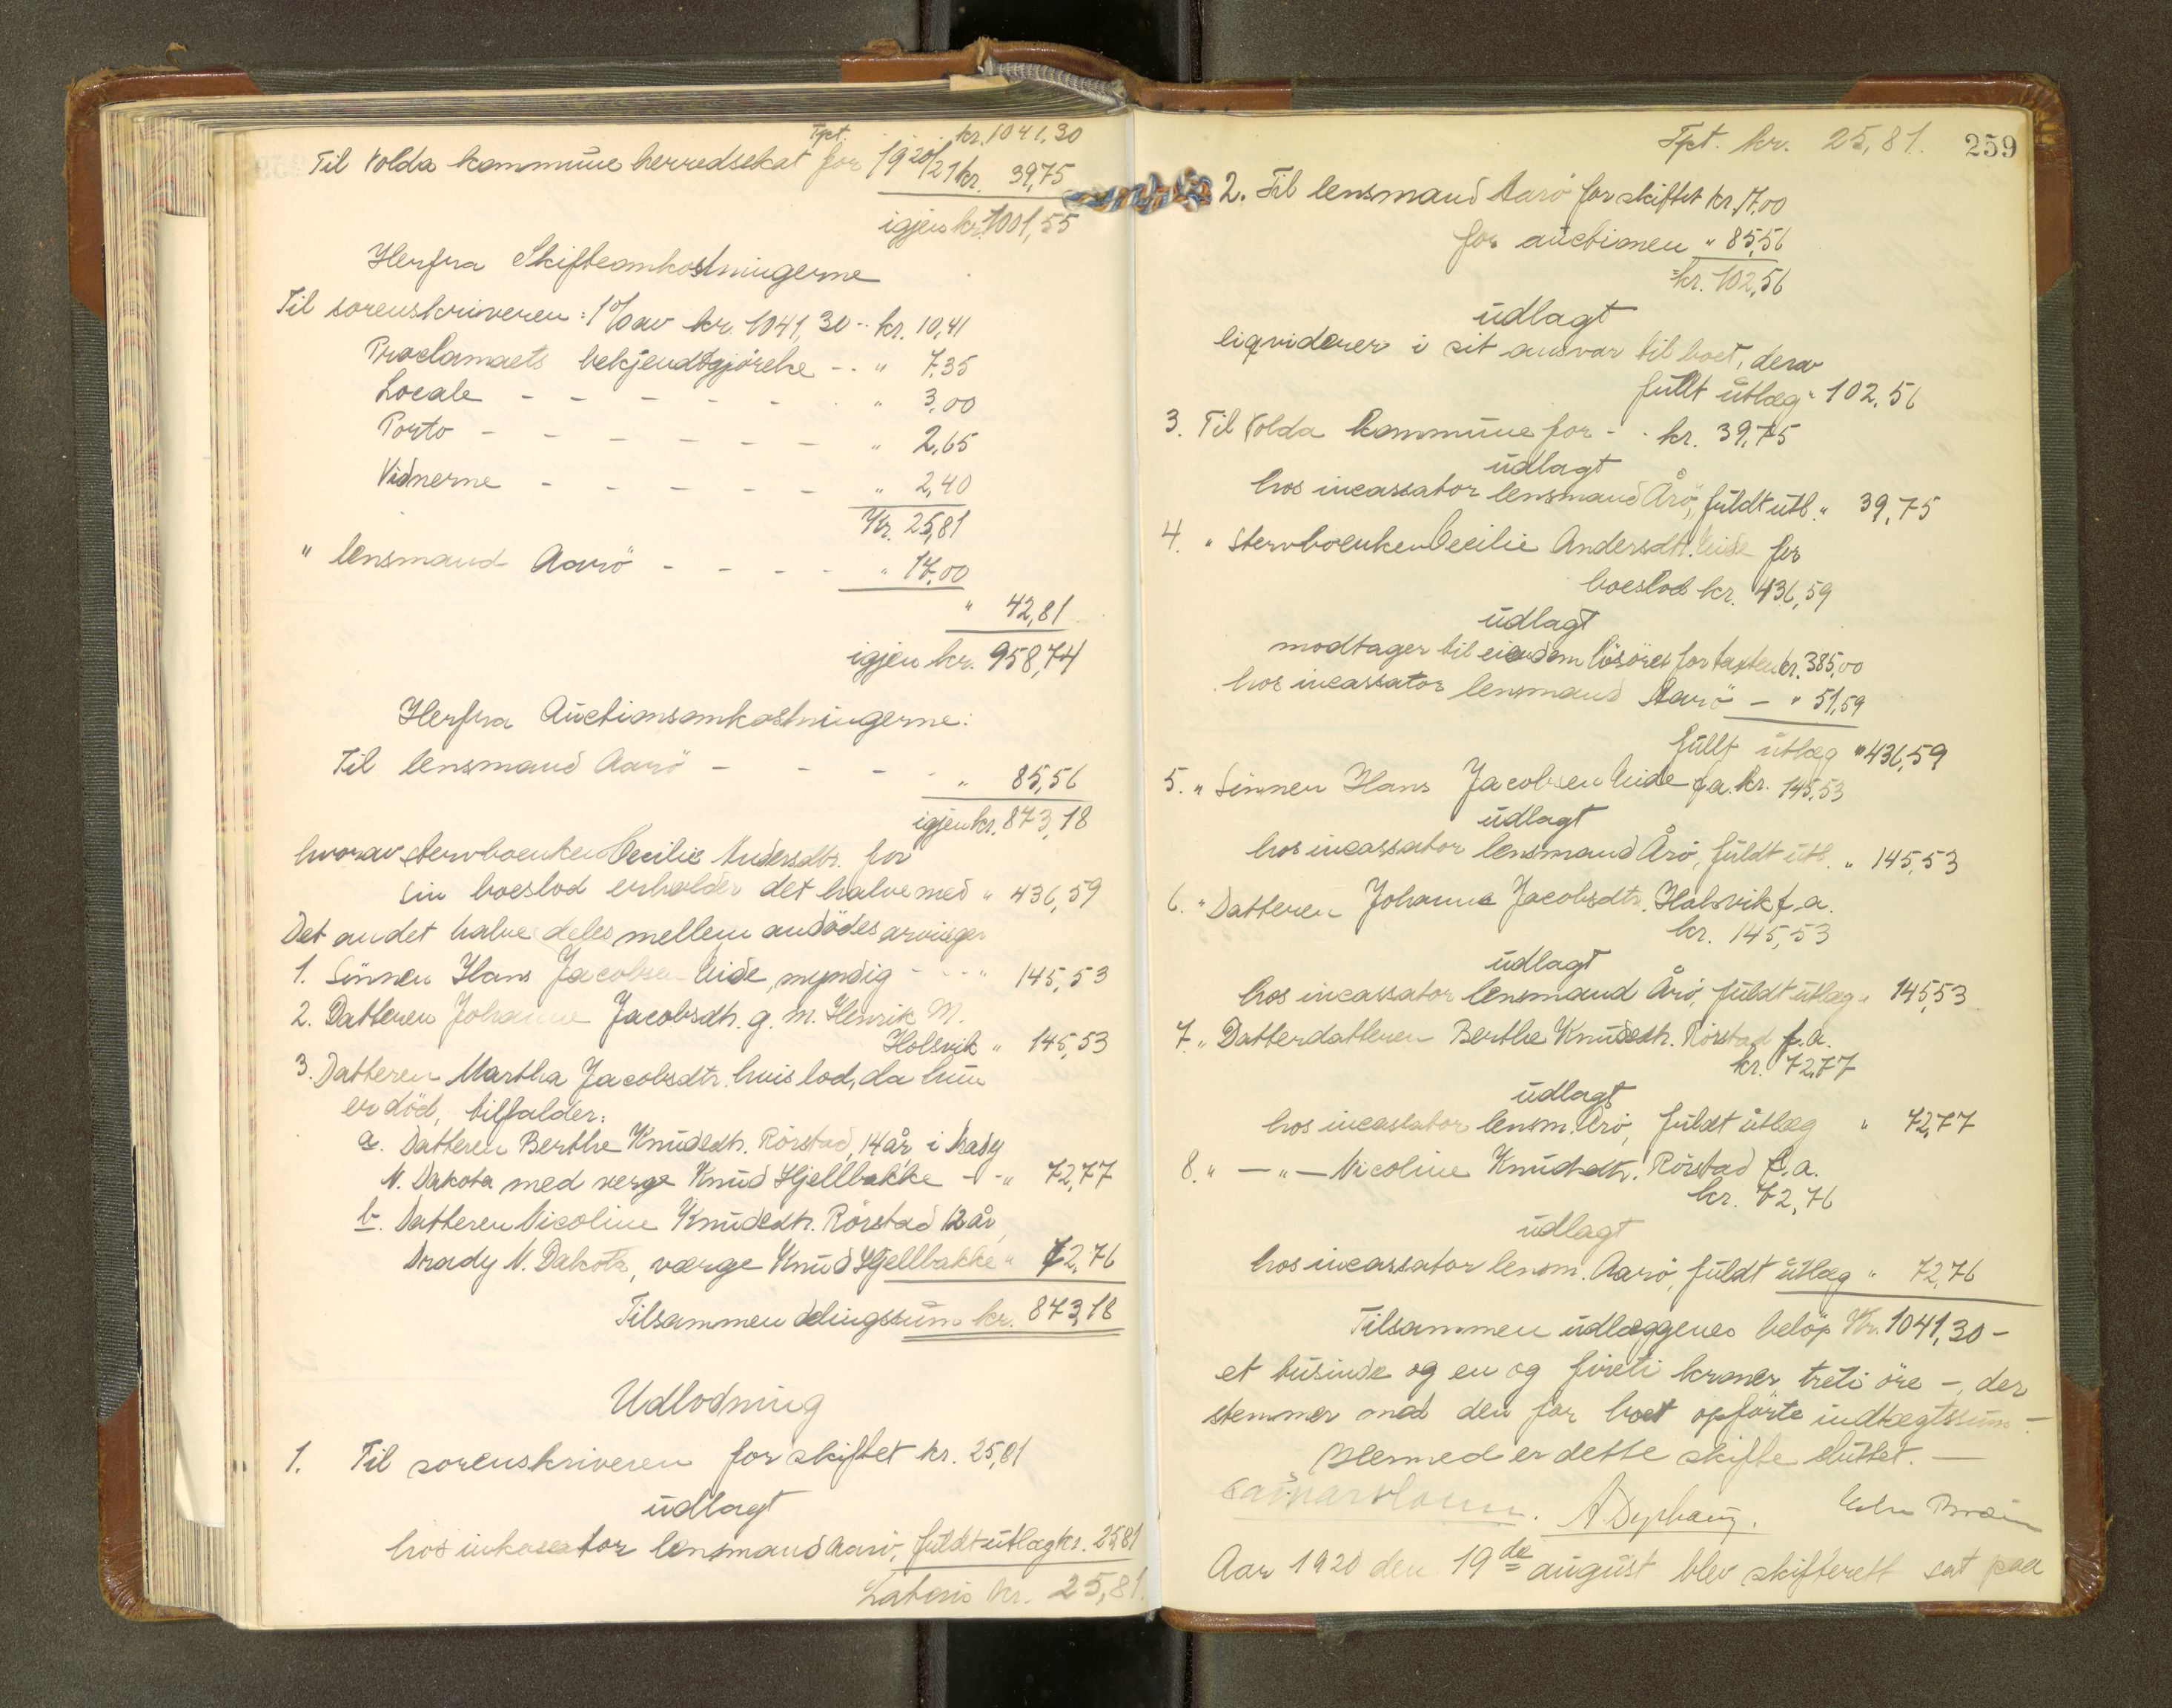 Tpt. kr. 1041,30
Til Volda kommune herredsskat for 1920/21 kr. 39,75
igjen kr. 1001,55
Herfra Skifteomkostningerne
Til sorenskriveren: 1% av kr. 1041,30 -- kr. 10,41
Proclamaets bekjendtgjörelse - - " 7,35
Locale - - - - - - " 3,00
Porto - - - - - - " 2,65
Vidnerne - - - - - " 2,40
Kr. 25,81
" lensmand Aarö - - - - " 17,00
" 42,81
igjen kr. 958,74
Herfra Auctionsomkostningerne:
Til lensmand Aarö - - - - " 85,56
igjen kr. 873,18
hvorav stervboenken Cecilie Andersdtr. for
sin boeslod erholder det halve med " 436,59
Det andet halve deles mellem avdödes arvinger
1. Sönnen Hans Jacobsen Eide, myndig - - - " 145,53
2. Datteren Johanne Jacobsdtr. g. m. Henrik M.
Holsvik " 145,53
3. Datteren Martha Jacobsdtr. hvis lod, da hun
er död, tilfalder:
a. Datteren Berthe Knudsdtr. Rörstad, 14 år i
N. Dakota med verge Knud Hjellbakke - - " 72,77
b. Datteren Nicoline Knudsdtr. Rörstad 12 år,
N. Dakota, værge Knud Hjellbakke " 72,76
Tilsammen delingssum kr. 873,18
Udlodning
1. Til sorenskriveren for skiftet kr. 25,81
udlagt
hos inkassator lensmand Aarö, fuldt utlæg kr. 25,81
Lateris kr. 25,81.
Tpt. kr. 25,81. 259
2. Til lensmand Aarö for skiftet kr. 17,00
for auctionen " 85,56
= kr. 102,56
udlagt
liqviderer i sit ansvar til boet, derav
fullt utlæg " 102,56
3. Til Volda kommune for - - kr. 39,75
udlagt
hos incassator lensmand Årö, fuldt utl. " 39,75
4. " stervboenken Cecilie Andersdtr. Eide for
boeslod kr. 436,59
udlagt
modtager til eiendom lösöret for taxten kr. 385,00
hos incassator lensmand Aarö - " 51,59
fullt utlæg " 436,59
5. " Sönnen Hans Jacobsen Eide f. a. kr. 145,53
udlagt
hos incassator lensmand Årö, fuldt utl. " 145,53
6. " Datteren Johanne Jacobsdtr. Holsvik f. a.
kr. 145,53
udlagt
hos incassator lensmand Årö, fuldt utlæg " 145,53
7. " Datterdatteren Berthe Knudsdtr. Rörstad f. a.
kr. 72,77
udlagt
hos incassator lensm. Årö, fuldt utlæg " 72,77
8. " — " — Nicoline Knudsdtr. Rörstad f. a.
kr. 72,76
udlagt
hos incassator lensm. Aarö, fuldt utlæg " 72,76
Tilsammen udlæggenes belöp Kr. 1041,30 -
et tusinde og en og fireti kroner treti öre -, der
stemmer med den for boet opförte indtægtssum -
Hermed er dette skifte sluttet. —
Aar 1920 den 19de august blev skifterett sat paa